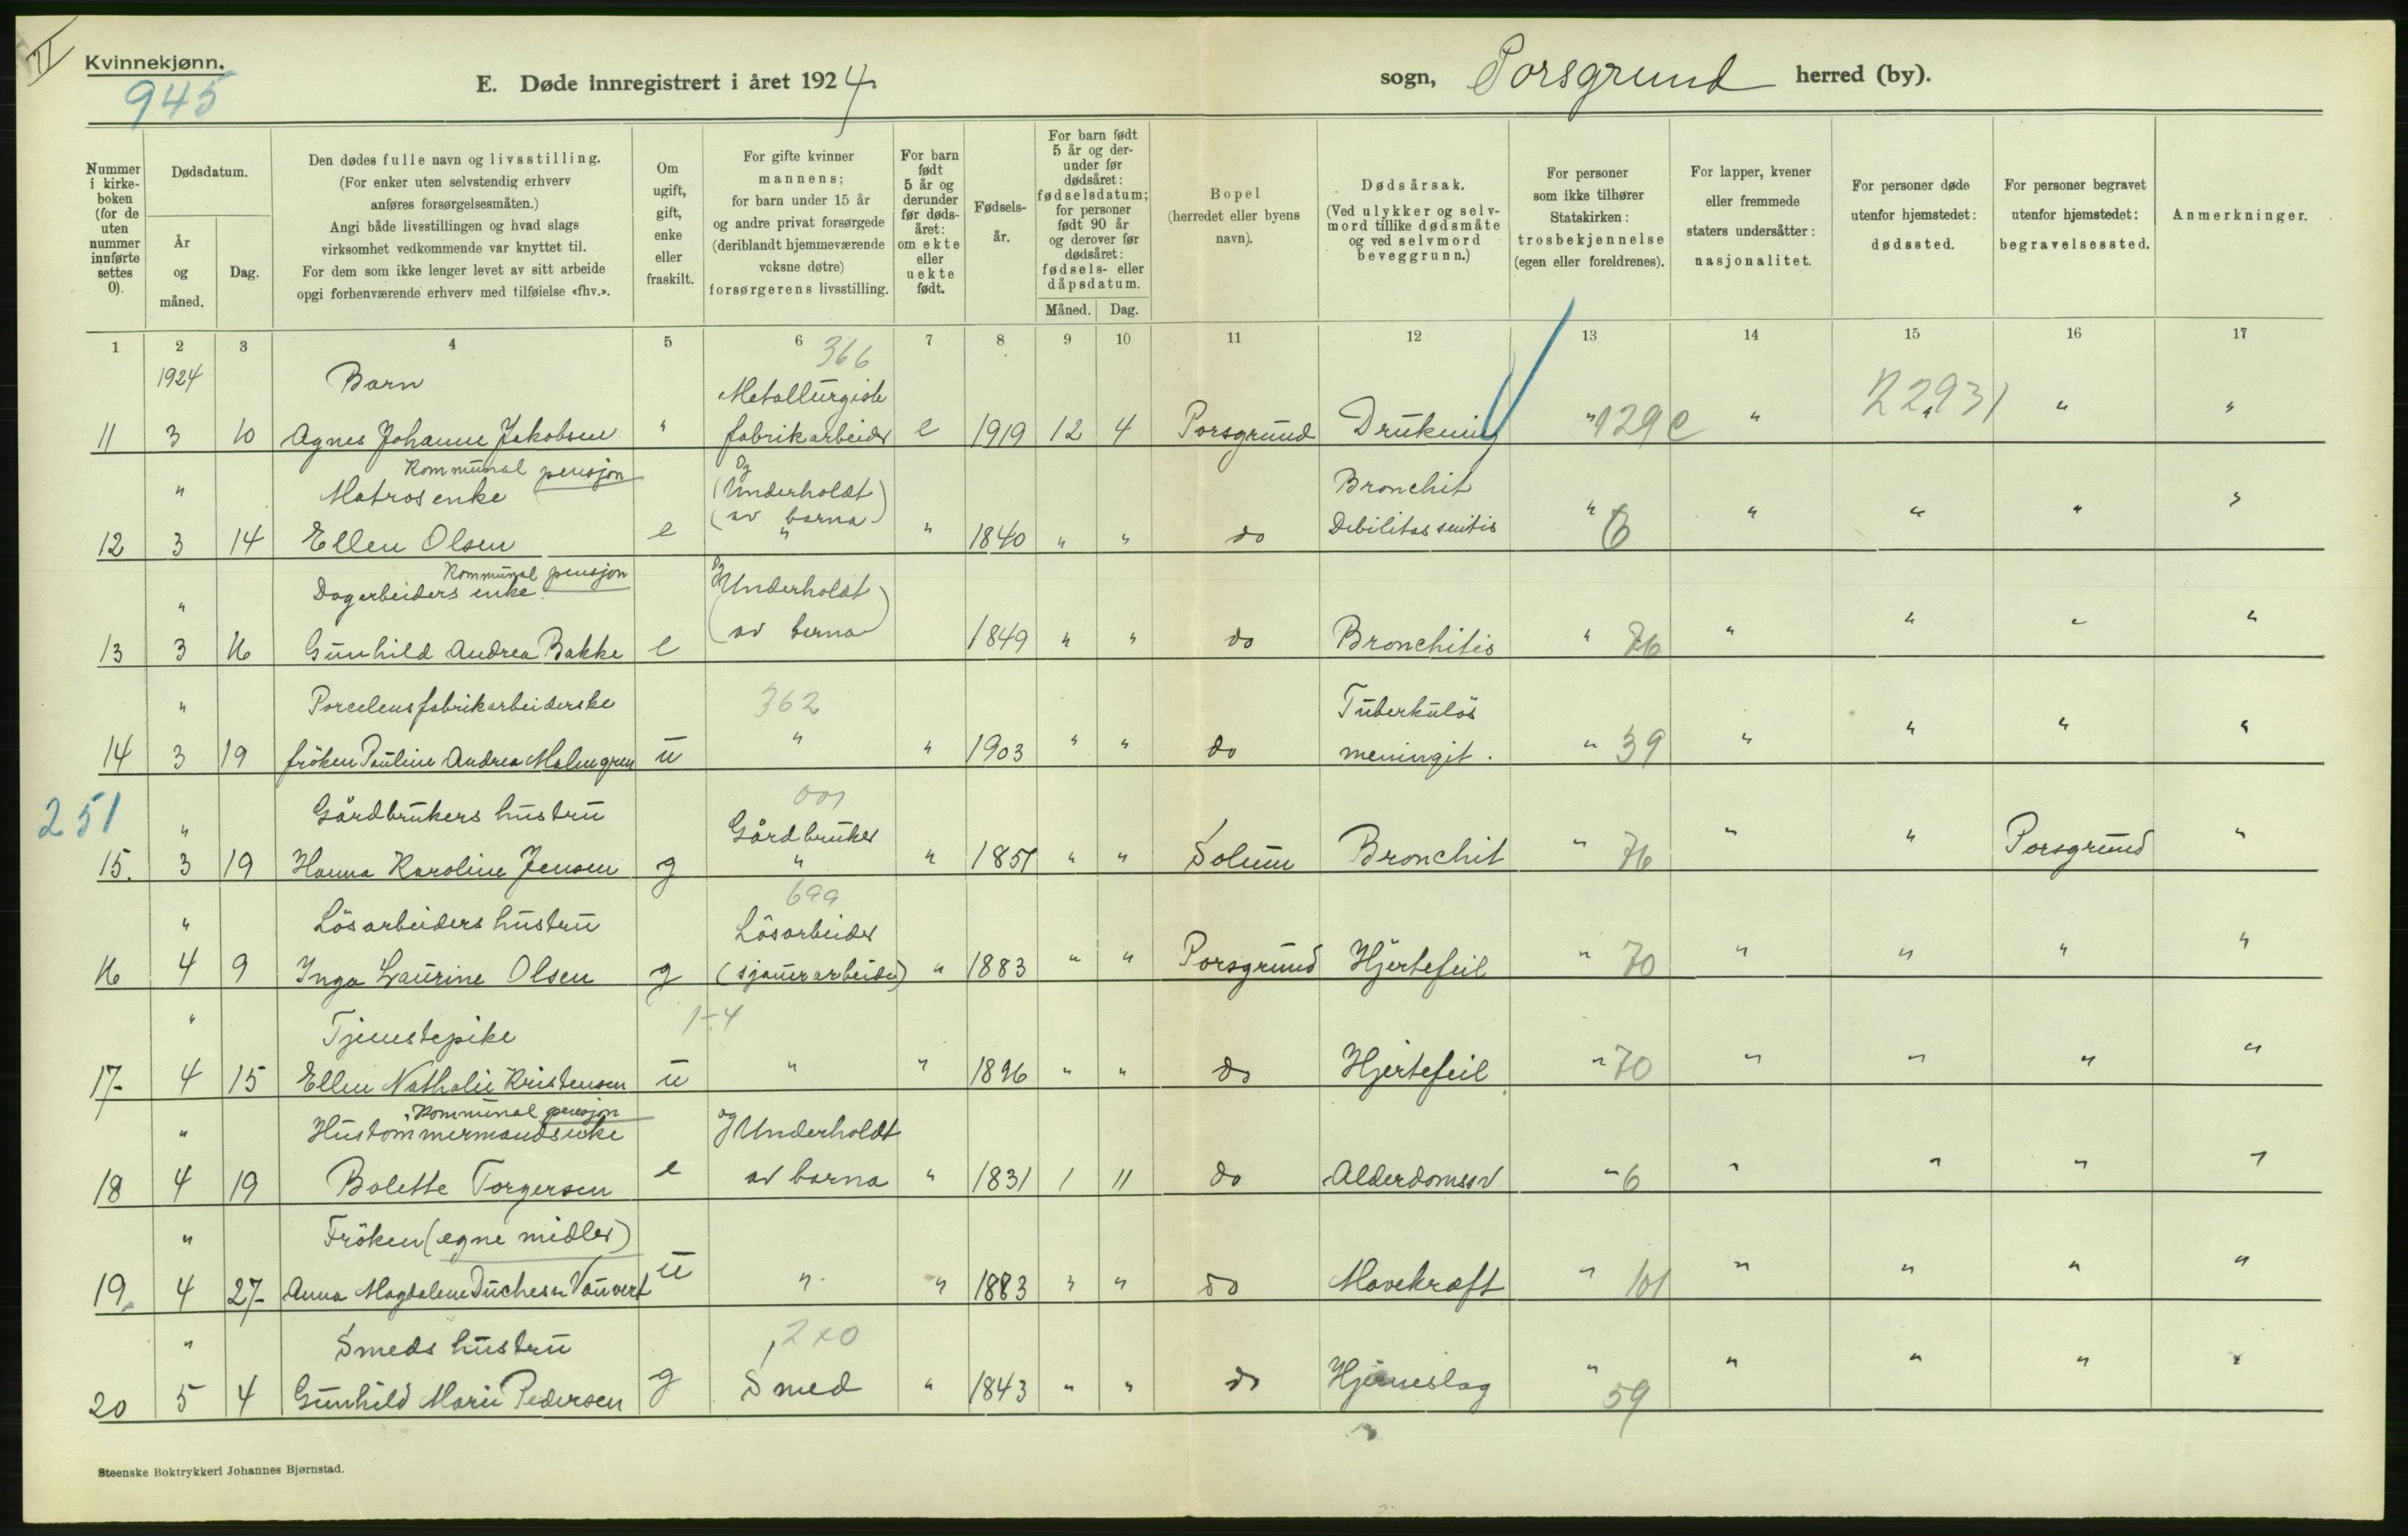 II
Kvinnekjønn.
945
E. Døde innregistrert i året 1924 sogn, Porsgrund herred (by).
Nummer i kirke- boken (for de uten nummer innførte settes 0).
Dødsdatum.
År og måned.
Dag.
Den dødes fulle navn og livsstilling.
(For enker uten selvstendig erhverv
anføres forsørgelsesmåten.)
Angi både livsstillingen og hvad slags
virksomhet vedkommende var knyttet til.
For dem som ikke lenger levet av sitt arbeide
opgi forhenværende erhverv med tilføielse «fhv.».
Om ugift, gift, enke eller fraskilt.
For gifte kvinner
mannens;
for barn under 15 år
og andre privat forsørgede
(deriblandt hjemmeværende
voksne døtre)
forsørgerens livsstilling.
For barn født 5 år og derunder før døds- året: om ekte eller uekte født.
Fødsels- år.
For barn født 5 år og der- under før dødsåret: fødselsdatum; for personer født 90 år og derover før dødsåret: fødsels- eller dåpsdatum.
Måned. Dag.
Bopel
(herredet eller byens
navn).
Dødsårsak.
(Ved ulykker og selv-
mord tillike dødsmåte
og ved selvmord
beveggrunn.)
For personer
som ikke tilhører
Statskirken:
trosbekjennelse
(egen eller foreldrenes).
For lapper, kvener
eller fremmede
staters undersåtter:
nasjonalitet.
For personer døde
utenfor hjemstedet:
dødssted.
For personer begravet
utenfor hjemstedet:
begravelsessted.
Anmerkninger.
1 2 3 4 5 6 7 8 9 10 11 12 13 14 15 16 17
366
1924 Barn Metallurgisk R 2931 " "
11 3 10 Agnes Johanne Jakobsen " fabrikarbeider e 1919 12 4 Porsgrund Drukning " 129 e " "
Kommunal pensjon og
" Matrosenke (Underholdt Bronchit
12 3 14 Ellen Olsen e av barna) " " 1840 " " do Debilitas senilis " 6 " " " "
Kommunal pensjon og
" Dagarbeiders enke (Underholdt
13 3 16 Gunhild Andrea Bakke e av barna) 1849 " " do Bronchitis " 76 " " " "
" Porcelensfabrikarbeiderske 362 Tuberkuløs
14 3 19 frøken Pauline Andrea Malmgren u " " 1903 " " do meningit. " 39 " " " "
251
" Gårdbrukers hustru 001 Gårdbruker
15. 3 19 Hanna Karoline Jensen g " " 1851 " " Solum Bronchit " 76 " " Porsgrund "
699
" Løsarbeiders hustru Løsarbeider
16 4 9 Inga Laurine Olsen g (sjauerarbeider) " 1883 " " Porsgrund Hjertefeil " 70 " " " "
" Tjenstepike 1-4
17- 4 15 Ellen Nathalie Kristensen u " " 1896 " " do Hjertefeil " 70 " " " "
Kommunal pensjon
" Hustømmermandsenke og Underholdt
18 4 19 Bolette Torgersen e av barna " 1831 1 11 do Alderdomssv " 6 " " " "
" Frøken (egne midler)
19. 4 27- Anna Magdalene Duchesn Vauvert u " " 1883 " " do Mavekræft " 101 " " " "
" Smeds hustru 2x0
20 5 4 Gunhild Marie Pedersen g Smed " 1843 " " do Hjerneslag " 59 " " " "
Steenske Boktrykkeri Johannes Bjørnstad.